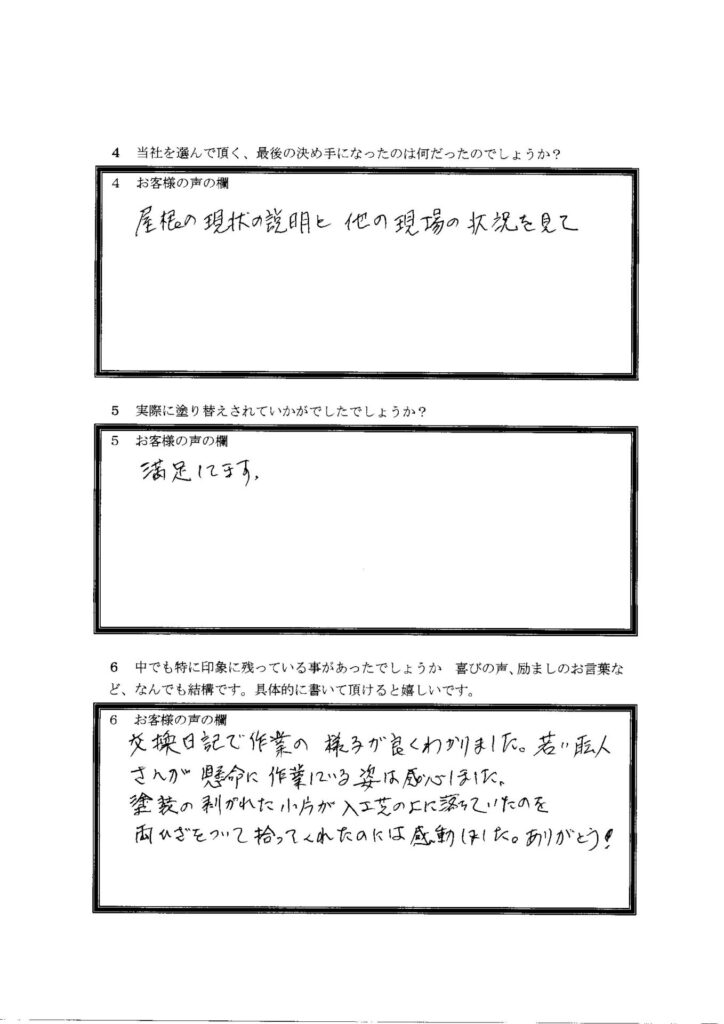 4 当社を選んで頂く、最後の決め手になったのは何だったのでしょうか？
4 お客様の声の欄
屋根の現状の説明と 他の現場の状況を見て
5 実際に塗り替えされていかがでしたでしょうか？
5 お客様の声の欄
満足してます。
6 中でも特に印象に残っている事があったでしょうか 喜びの声、励ましのお言葉な
ど、なんでも結構です。具体的に書いて頂けると嬉しいです。
6 お客様の声の欄
交換日記で作業の 様子が良くわかりました。若い職人
さんが 懸命に 作業している 姿は感心しました。
塗装の剥がれた小片が 人工芝の上に落ちていたのを
両ひざをついて拾ってくれたのには感動しました。ありがとう!